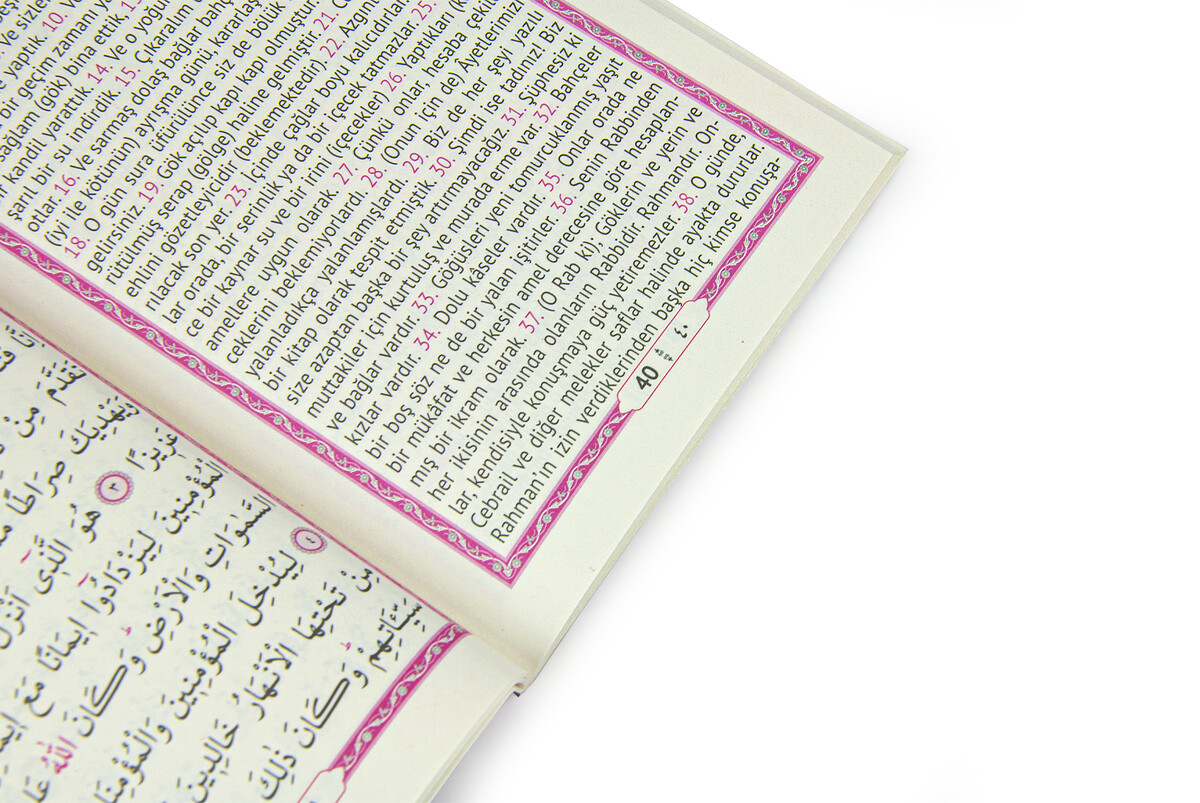 bir geçim zaman
yaptık. 10.
sağlam (gök) bina ettik.
kandil yarattık. 14. Ve o yoğun
şarıl bir su indirdik. 15. Çıkaralım
otlar. 16. Ve sarmaş dolaş bağlar bahç
(iyi ile kötünün) ayrışma günü, kararlaş
18. O gün sura üfürülünce siz de bölük
gelirsiniz. 19. Gök açılıp kapı kapı olmuştur.
rütülmüş serap (gölge) haline gelmiştir. 21.
ehlini gözetleyicidir (beklemektedir) 22. Azgın
rılacak son yer. 23. İçinde çağlar boyu kalıcıdırlar
lar orada, bir serinlik ya da bir içecek tatmazlar. 25.
ce bir kaynar su ve bir irini (çecekler) 26. Yaptıkları
amellere uygun olarak. 27. Çünkü onlar hesaba çekil
ceklerini beklemiyorlardı. 28. (Onun için de) Âyetlerimizi
yalanladıkça yalanlamışlardı. 29. Biz de her şeyi yazılı
bir kitap olarak tespit etmiştik. 30. Şimdi ise tadınız! Biz
size azaptan başka bir şey artırmayacağız. 31. Şüphesiz ki
muttakiler için kurtuluş ve murada erme var. 32. Bahçeler
ve bağlar vardır. 33. Göğüsleri yeni tomurcuklanmış yaşıt
kızlar vardır. 34. Dolu kâseler vardır. 35. Onlar orada ne
bir boş söz ne de bir yalan işitirler. 36. Senin Rabbinden
bir mükâfat ve herkesin amel derecesine göre hesaplan-
mış bir ikram olarak. 37. (O Rab ki), Göklerin ve yerin ve
her ikisinin arasında olanların Rabbidir. Rahmandır. On-
lar, kendisiyle konuşmaya güç yetiremezler. 38. O günde,
Cebrail ve diğer melekler saflar halinde ayakta dururlar
Rahman'ın izin verdiklerinden başka hiç kimse konuşa-
40 ٤٠
تَقَدَّمَ مِنْ
وَيَهْدِيَكَ صِرَاطًا
عَزِيزًا ٣ هُوَ الَّذِى اَنْزَلَ
الْمُؤْمِنِينَ لِيَزْدَادُوا اِيمَانًا مَعَ
السَّمٰوَاتِ وَالْاَرْضِ وَكَانَ اللّٰهُ
٤ لِيُدْخِلَ الْمُؤْمِنِينَ وَالْمُؤْمِنَاتِ
مِنْ تَحْتِهَا الْاَنْهَارُ خَالِدِينَ
سَيِّـَٔاتِهِمْ وَكَانَ ذٰلِكَ